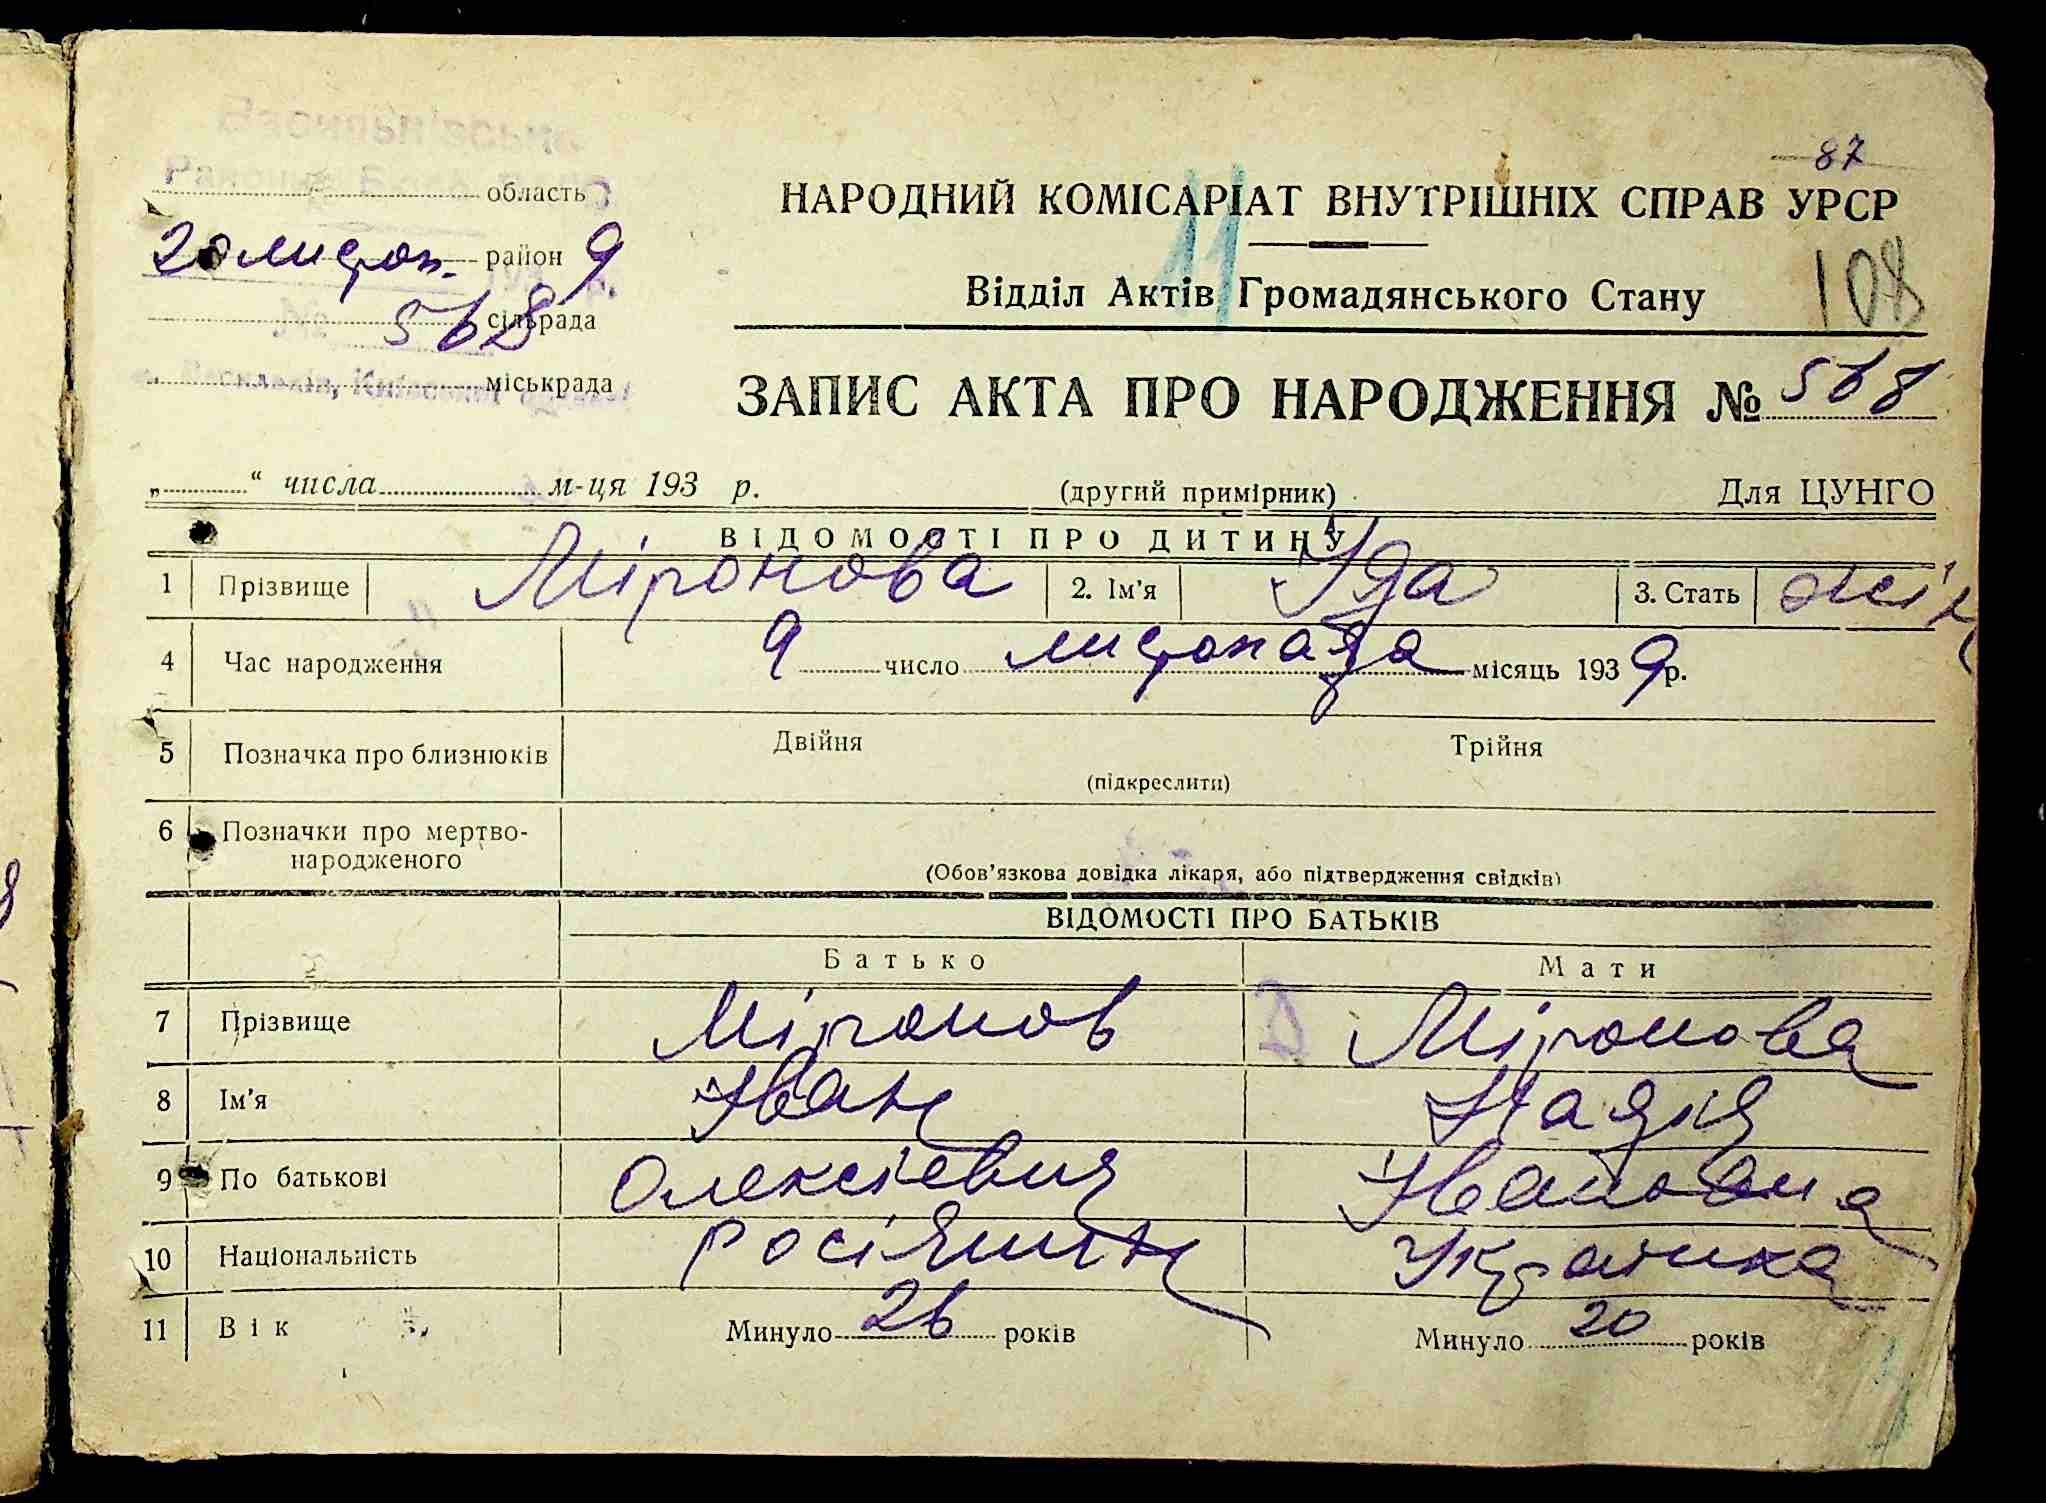 87
область
НАРОДНИЙ КОМІСАРІАТ ВНУТРІШНІХ СПРАВ УРСР
20 листоп. район 9
11
Відділ Актів Громадянського Стану
108
№ 568 сільрада
міськрада
ЗАПИС АКТА ПРО НАРОДЖЕННЯ № 568
„ “ числа м-ця 193 р. (другий примірник) Для ЦУНГО
ВІДОМОСТІ ПРО ДИТИНУ
1 Прізвище Міронова 2. Ім'я Іда 3. Стать жін
4 Час народження 9 число листопада місяць 1939 р.
5 Позначка про близнюків Двійня Трійня
(підкреслити)
6 Позначки про мертво-
народженого
(Обов'язкова довідка лікаря, або підтвердження свідків)
ВІДОМОСТІ ПРО БАТЬКІВ
Батько Мати
7 Прізвище Міронов Міронова
8 Ім'я Іван Надія
9 По батькові Олексієвич Івановна
10 Національність росіянин Українка
11 Вік Минуло 26 років Минуло 20 років